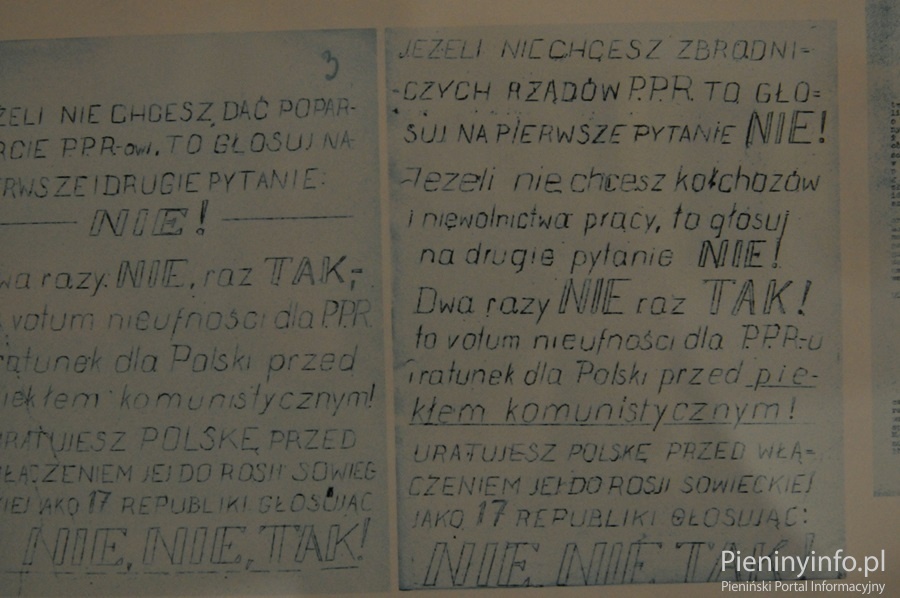 3
ŻELI NIE CHCESZ DAĆ POPAR-
RCIE P.P.R-owi. TO GŁOSUJ NA
ERWSZE I DRUGIE PYTANIE:
NIE!
wa razy: NIE, raz TAK,-
votum nieufności dla P.P.R.
ratunek dla Polski przed
iekłem komunistycznym!
URATUJESZ POLSKĘ PRZED
WŁĄCZENIEM JEJ DO ROSJI SOWIEC
KIEJ JAKO 17 REPUBLIKI GŁOSUJĄC
NIE, NIE, TAK!
JEŻELI NIE CHCESZ ZBRODNI-
-CZYCH RZĄDÓW P.P.R. TO GŁO-
SUJ NA PIERWSZE PYTANIE NIE!
Jeżeli nie chcesz kołchozów
i niewolnictwa pracy, to głosuj
na drugie pytanie NIE!
Dwa razy NIE raz TAK!
to votum nieufności dla P.P.R-u
i ratunek dla Polski przed pie-
kłem komunistycznym!
URATUJESZ POLSKĘ PRZED WŁĄ-
CZENIEM JEJ DO ROSJI SOWIECKIEJ
JAKO 17 REPUBLIKI GŁOSUJĄC:
NIE NIE TAK!
Pieninyinfo.pl
Pieniński Portal Informacyjny